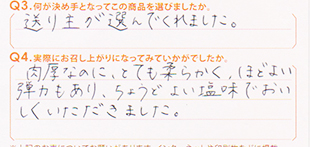 Q3.何が決め手となってこの商品を選びましたか。
送り主が選んでくれました。
Q4.実際にお召し上がりになってみていかがでしたか。
肉厚なのに、とても柔らかく、ほどよい
弾力もあり、ちょうどよい塩味でおい
しくいただきました。